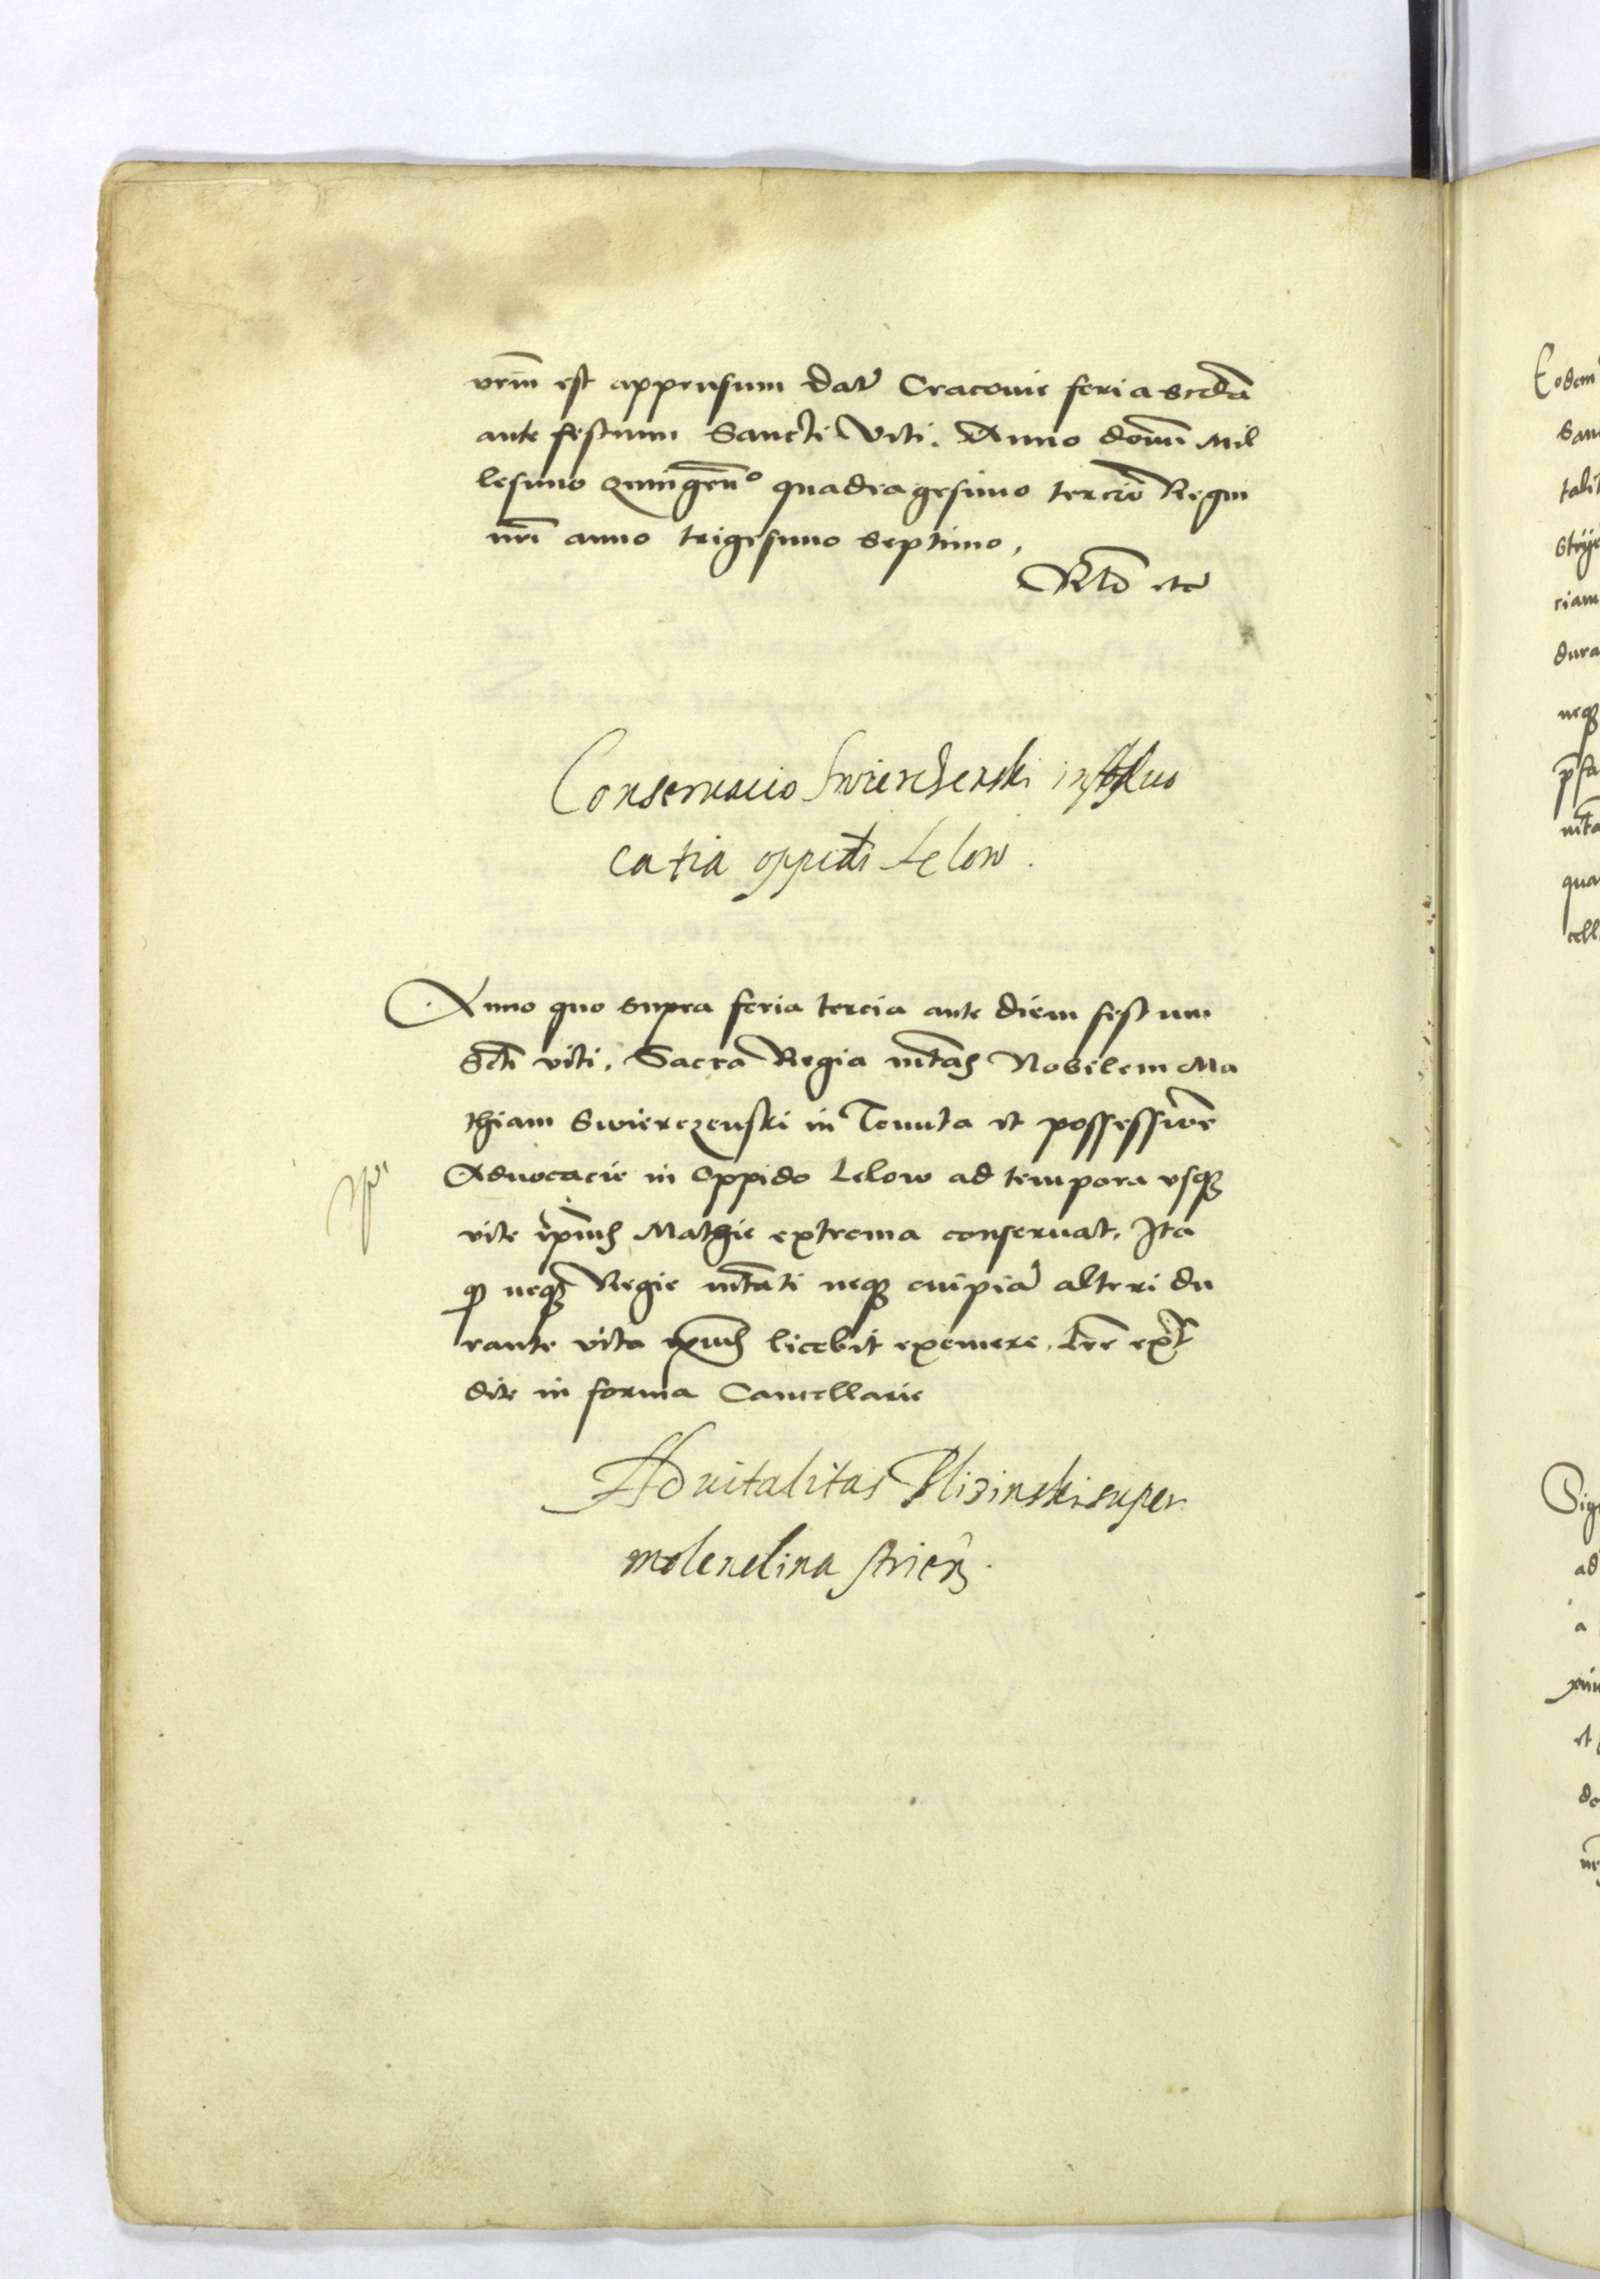 nrm̃ est appensum Dat̃ Cracovie feria scda
ante festum Sancti Viti. Anno domi Mil
lesimo quingeno quadragesimo tercio Regni
nri anno trigesimo septimo.
Rtō etc
Conservacio Swierczenski in Advo
catia oppidi Lelow.
Anno quo supra feria tercia ante diem festum
Scti viti. Sacra Regia mtas Nobilem Ma
thiam Swierczenski in Tenuta et possessione
Advocacie in Oppido Lelow ad tempora usq
vite ipius Mathie extrema conservat. Ita
q neq Regie mtati neq cuipia alteri du
rante vita ipius licebit exemere. Lre expe
dite in forma Cancellarie
Advitalitas Blizinski super
molendina Strien
Eodem
San
talit
Stryie
ciam
dura
neq
pfa
mta
qua
cell
Sig
ad
a
et
de